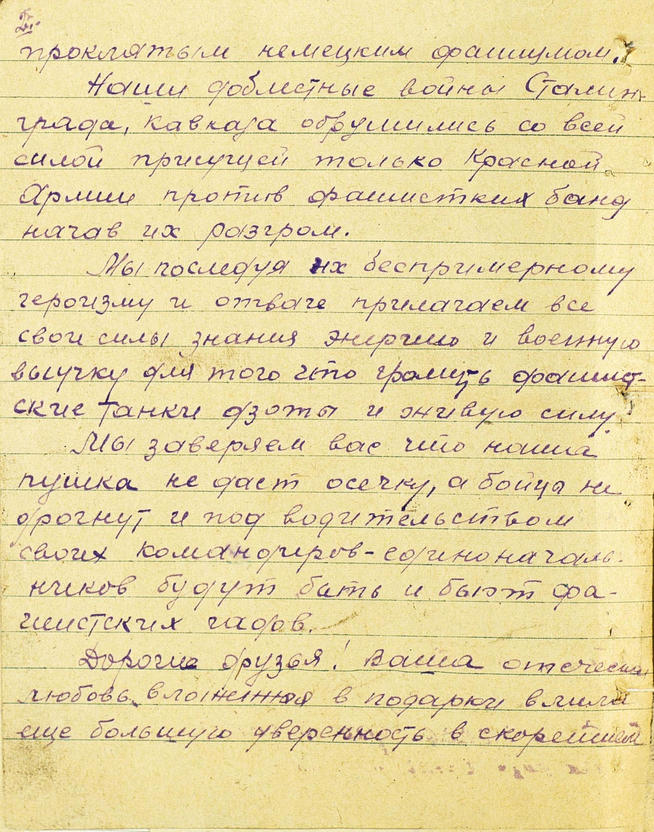 проклятым немецким фашизмом.
Наши доблистные войны Сталин-
града, Кавказа обрушились со всей
силой присущей только Красной
Армии против фашистких банд
начав их разгром.
Мы последуя их беспримерному
героизму и отваге прилагаем все
свои силы знания энергию и военную
выучку для того что громить фашист-
ские танки дзоты и живую силу.
Мы заверяем вас что наша
пушка не даст осечку, а бойцы не
дрогнут и под водительством
своих командиров-единоначаль-
ников будут бить и бьют фа-
шистских гадов.
Дорогие друзья! Ваша
любовь вложенная в подарки влила
еще большую уверенность в скорейшей